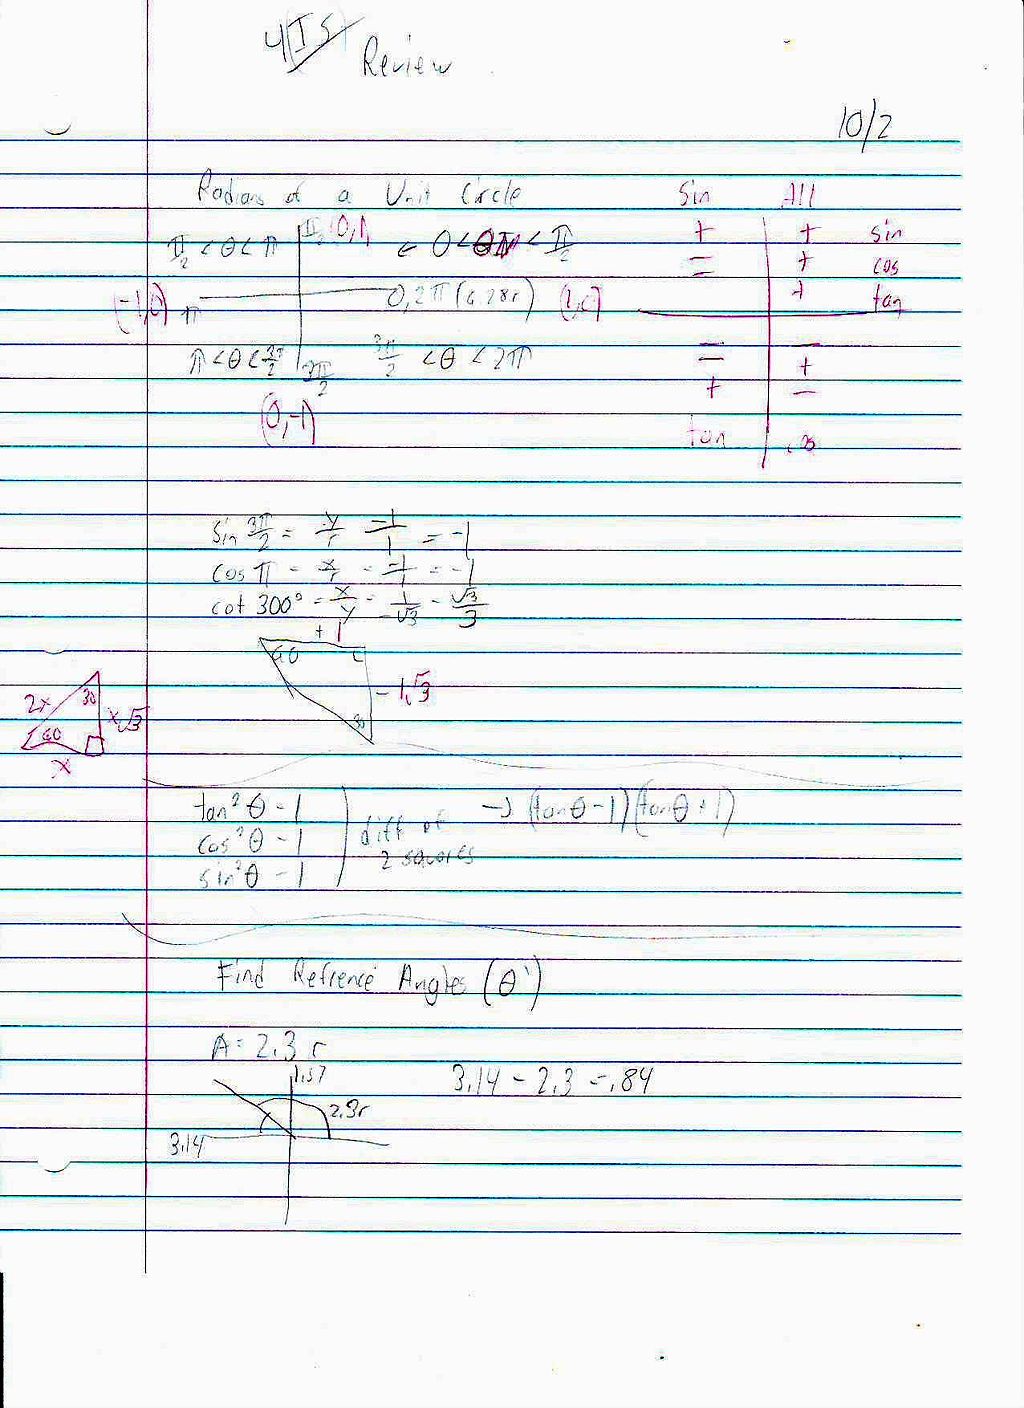 Review
10/2
Radians of a Unit Circle
Sin All
π/2 < θ < π π/2 (0,1) 0 < θ < π/2
+ + sin
− + cos
+ tan
(-1,0) π 0, 2π (6.28r) (1,0)
π < θ < 3π/2 3π/2 3π/2 < θ < 2π
− −
− +
+ −
(0,-1)
tan cos
sin 3π/2 = y/r = -1/1 = -1
cos π = x/r = -1/1 = -1
cot 300° = x/y = 1/-√3 = √3/3
+ 1
60
- 1√3
30
2x 30 x√3
60
x
tan² θ - 1
cos² θ - 1
sin² θ - 1
diff of
2 squares
→ (tanθ - 1)(tanθ + 1)
Find Refrence Angles (θ')
A = 2.3 r
1.57
3.14 - 2.3 = .84
2.3r
3.14